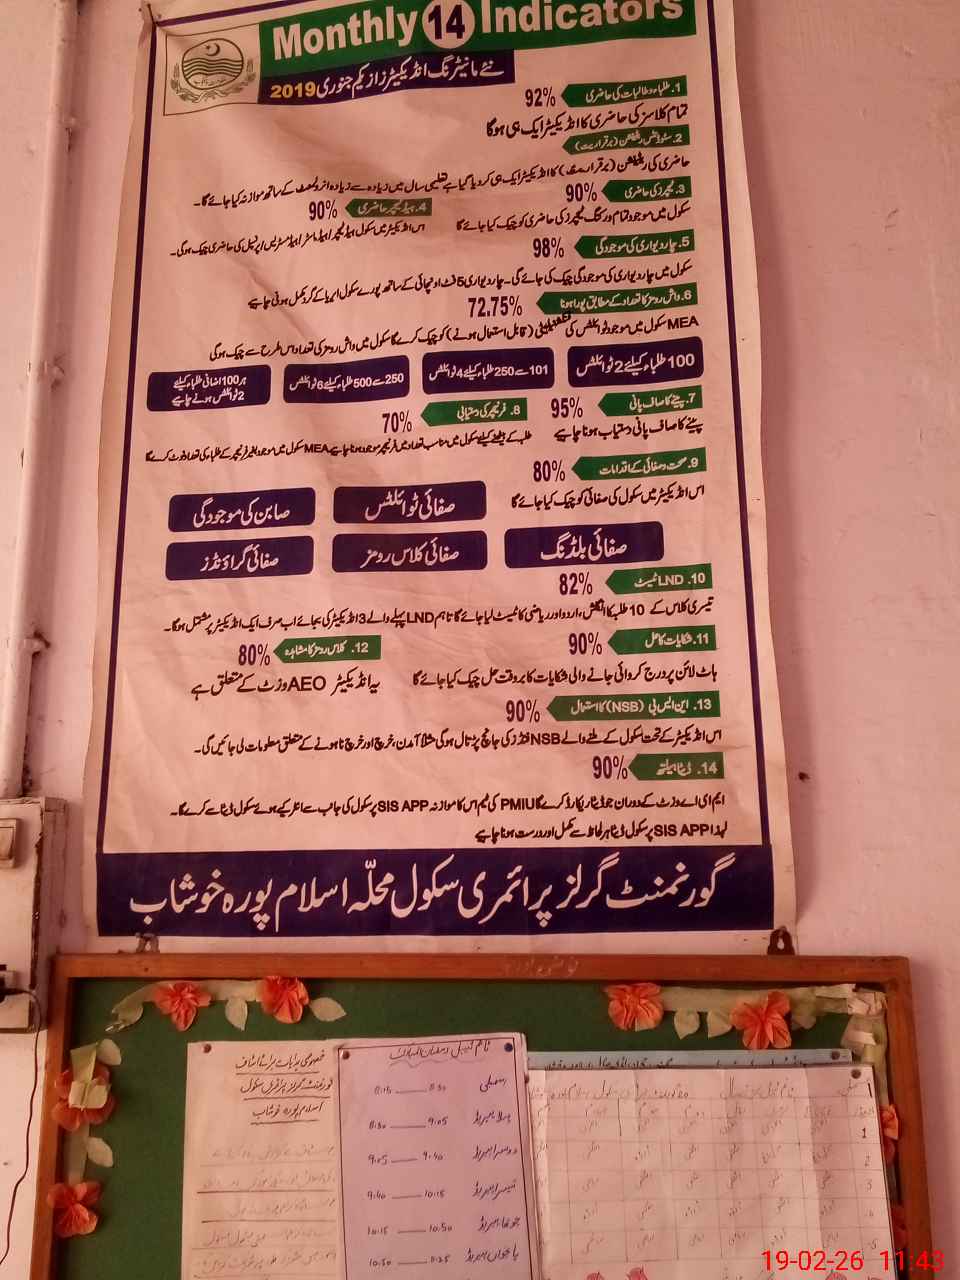 Monthly 14 Indicators
نئے مانیٹرنگ انڈیکیٹرز از یکم جنوری 2019
1. طلباء و طالبات کی حاضری 92%
تمام کلاسز کی حاضری کا انڈیکیٹر ایک ہی ہوگا
2. سٹوڈنٹس ریٹینشن (برقراریت)
حاضری کی ریٹینشن (برقراریت) کا انڈیکیٹر ایک ہی کر دیا گیا ہے تعلیمی سال میں زیادہ سے زیادہ انرولمنٹ کے ساتھ موازنہ کیا جائے گا۔
3. ٹیچرز کی حاضری 90%
سکول میں موجود تمام ورکنگ ٹیچرز کی حاضری کو چیک کیا جائے گا
4. ہیڈ ٹیچر حاضری 90%
اس انڈیکیٹر میں سکول ہیڈ ٹیچر/ہیڈ ماسٹر/ہیڈ مسٹریس/پرنسپل کی حاضری چیک ہوگی۔
5. چار دیواری کی موجودگی 98%
سکول میں چار دیواری کی موجودگی چیک کی جائے گی۔ چار دیواری 5 فٹ اونچائی کے ساتھ پورے سکول ایریا کے گرد مکمل ہونی چاہیے
6. واش رومز کا تعداد کے مطابق پورا ہونا 72.75%
MEA سکول میں موجود ٹوائلٹس کی (قابل استعمال ہونے) کو چیک کرے گا سکول میں واش رومز کی تعداد اس طرح سے چیک ہوگی
100 طلباء کیلئے 2 ٹوائلٹس
101 سے 250 طلباء کیلئے 4 ٹوائلٹس
250 سے 500 طلباء کیلئے 6 ٹوائلٹس
ہر 100 اضافی طلباء کیلئے
2 ٹوائلٹس ہونے چاہیے
7. پینے کا صاف پانی 95%
پینے کا صاف پانی دستیاب ہونا چاہیے
8. فرنیچر کی دستیابی 70%
طلبہ کے بیٹھنے کیلئے سکول میں مناسب تعداد میں فرنیچر موجود ہونا چاہیے MEA سکول میں موجود بغیر فرنیچر کے طلباء کی تعداد نوٹ کرے گا
9. صحت و صفائی کے اقدامات 80%
اس انڈیکیٹر میں سکول کی صفائی کو چیک کیا جائے گا
صفائی ٹوائلٹس
صابن کی موجودگی
صفائی بلڈنگ
صفائی کلاس رومز
صفائی گراؤنڈز
10. LND ٹیسٹ 82%
تیسری کلاس کے 10 طلبہ کا انگلش، اردو اور ریاضی کا ٹیسٹ لیا جائے گا تاہم LND پہلے والے 3 انڈیکیٹر کی بجائے اب صرف ایک انڈیکیٹر پر مشتمل ہوگا۔
11. شکایات کا حل 90%
ہاٹ لائن پر درج کروائی جانے والی شکایات کا بروقت حل چیک کیا جائے گا
12. کلاس رومز کا مشاہدہ 80%
یہ انڈیکیٹر AEO وزٹ کے متعلق ہے
13. این ایس بی (NSB) کا استعمال 90%
اس انڈیکیٹر کے تحت سکول کے ملنے والے NSB فنڈز کی جانچ پڑتال ہوگی مثلاً آمدن، خرچ اور خرچ نا ہونے کے متعلق معلومات لی جائیں گی۔
14. ڈیٹا ہیلتھ 90%
ایم ای اے وزٹ کے دوران جو ڈیٹا ریکارڈ کرے گا PMIU کی ٹیم اس کا موازنہ SIS APP پر سکول کی جانب سے انٹر کیے ہوئے سکول ڈیٹا سے کرے گا۔
لہذا SIS APP پر سکول ڈیٹا ہر لحاظ سے مکمل اور درست ہونا چاہیے
گورنمنٹ گرلز پرائمری سکول محلّہ اسلام پورہ خوشاب
خصوصی ہدایات برائے سٹاف
گورنمنٹ گرلز پرائمری سکول
اسلام پورہ خوشاب
ٹائم ٹیبل رمضان المبارک
اسمبلی 8:15 — 8:30
پہلا پیریڈ 8:30 — 9:05
دوسرا پیریڈ 9:05 — 9:40
تیسرا پیریڈ 9:40 — 10:15
چوتھا پیریڈ 10:15 — 10:50
پانچواں پیریڈ 10:50 — 11:25
19-02-26 11:43